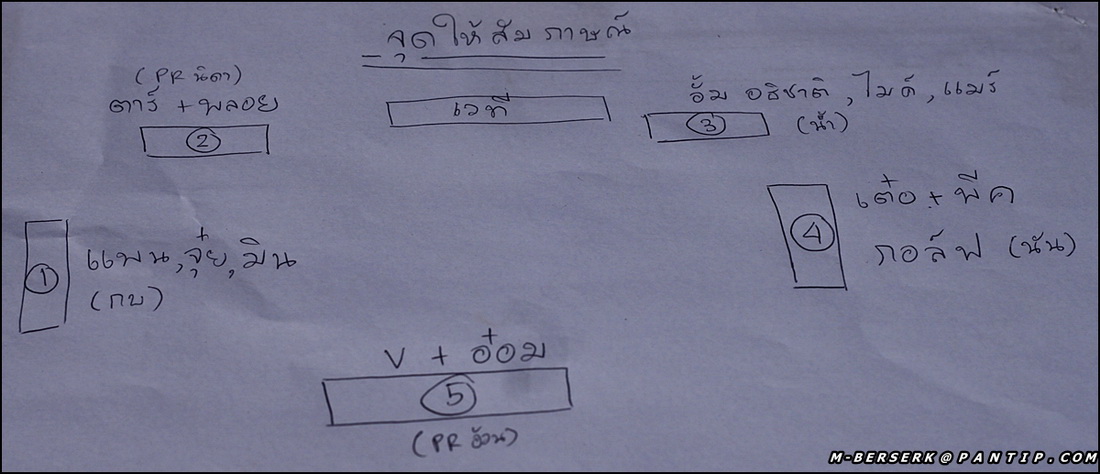 จุดให้สัมภาษณ์
(PR นิดา)
ตาร์ + พลอย
②
เวที
อั้ม อธิชาติ, ไมค์, แมร์
③ (น้ำ)
①
แพน, จุ๋ย, มิน
(กบ)
④
เต๋อ + พีค
กอล์ฟ (นัน)
V + อ๋อม
⑤
(PR อ้วน)
M-BERSERK@PANTIP.COM